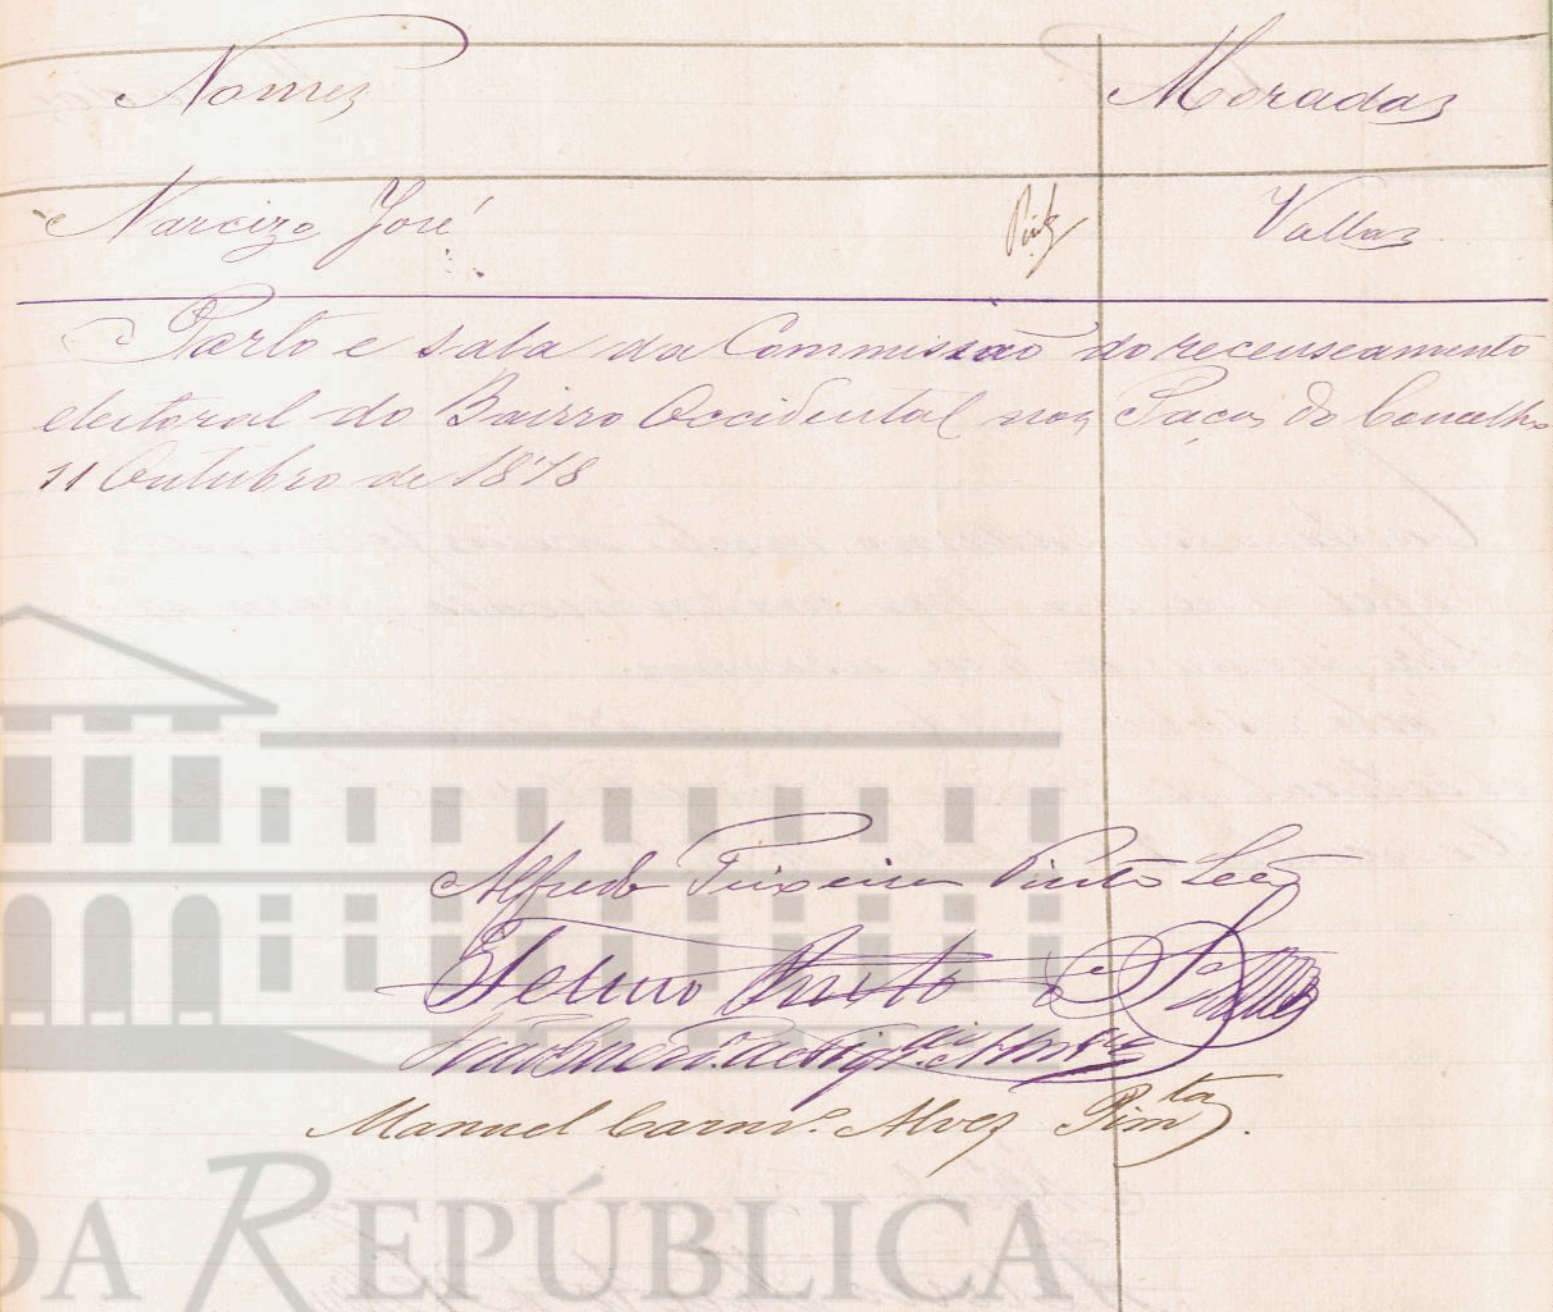 Nomes Moradas
Narcizo José Vallas
Porto e sala da Commissão do recenseamento
eleitoral do Bairro Occidental nos Paços do Concelho
11 Outubro de 1878
Alfredo Teixeira Pinto Leão
Telmo
Manuel Carnr.º Alves Pimta.
DA REPÚBLICA